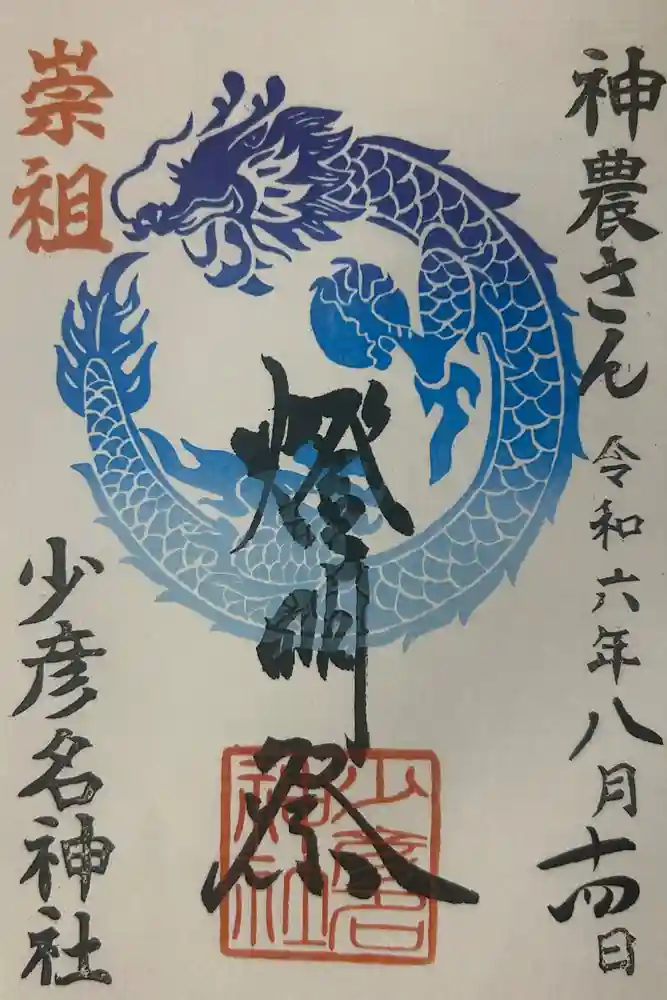 神農さん 令和六年八月十四日
燈明祭
少彦名神社
崇祖
少彦名神社